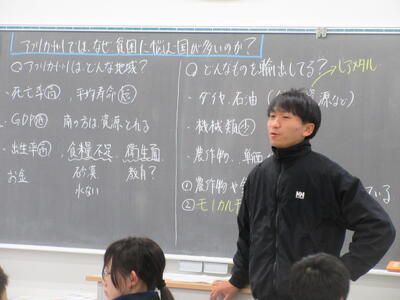 アフリカ州では、なぜ貧困に悩む国が多いのか?
Q アフリカ州はどんな地域?
・死亡率高 平均寿命短
・GDP低 南の方は資源とれる
・出生率高 食糧不足 衛生面
お金 砂漠 教育?
水ない
Q どんなものを輸出してる?
レアメタル
・ダイヤ、石油 (資源など)
・機械類少
・農作物、単価
①農作物や ている
②モノカルチ
HH